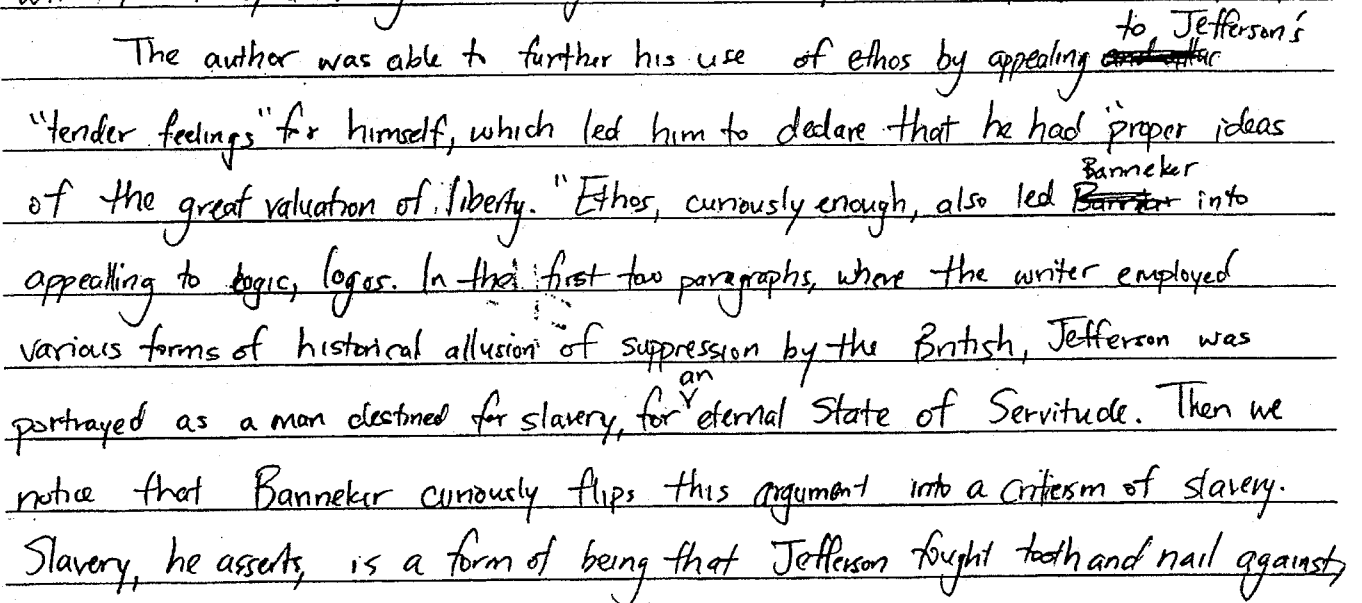 The author was able to further his use of ethos by appealing to Jefferson's
"tender feelings" for himself, which led him to declare that he had "proper ideas
of the great valuation of liberty." Ethos, curiously enough, also led Banneker into
appealling to logic, logos. In the first two paragraphs, where the writer employed
various forms of historical allusion of suppression by the British, Jefferson was
portrayed as a man destined for slavery, for an eternal State of Servitude. Then we
notice that Banneker curiously flips this argument into a criticism of slavery.
Slavery, he asserts, is a form of being that Jefferson fought tooth and nail against,